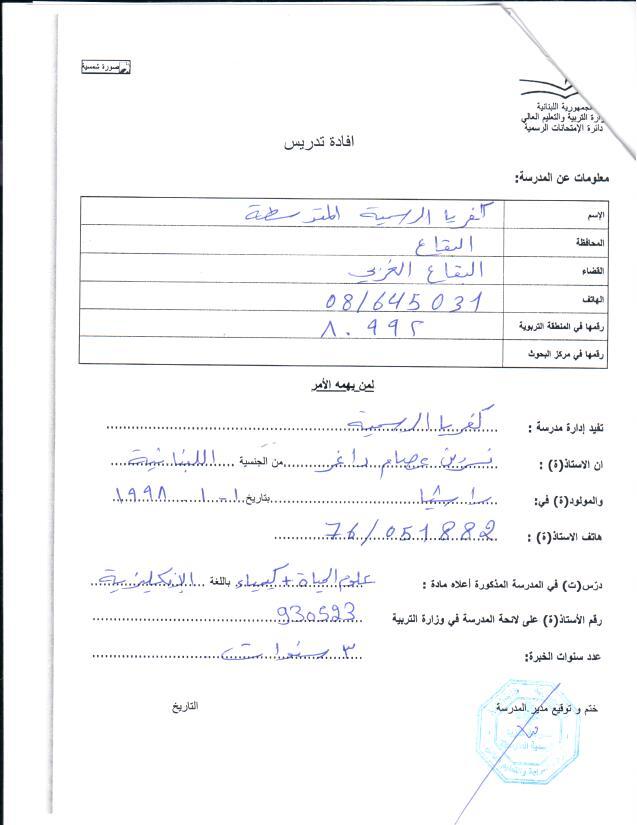 صورة شمسية
الجمهورية اللبنانية
وزارة التربية والتعليم العالي
دائرة الإمتحانات الرسمية
افادة تدريس
معلومات عن المدرسة:
الإسم كفريا الرسمية المتوسطة
المحافظة البقاع
القضاء البقاع الغربي
الهاتف 08/645031
رقمها في المنطقة التربوية ٨٠٩٩٢
رقمها في مركز البحوث
لمن يهمه الأمر
تفيد إدارة مدرسة : كفريا الرسمية
ان الاستاذ(ة) : نسرين عصام داغر من الجنسية اللبنانية
والمولود(ة) في: راشيا بتاريخ ١-١-١٩٩٨
هاتف الاستاذ(ة) : 76/051882
درّس(ت) في المدرسة المذكورة أعلاه مادة : علوم الحياة + كيمياء باللغة الإنكليزية
رقم الأستاذ(ة) على لائحة المدرسة في وزارة التربية 930523
عدد سنوات الخبرة: ٣ سنوات
ختم و توقيع مدير المدرسة التاريخ